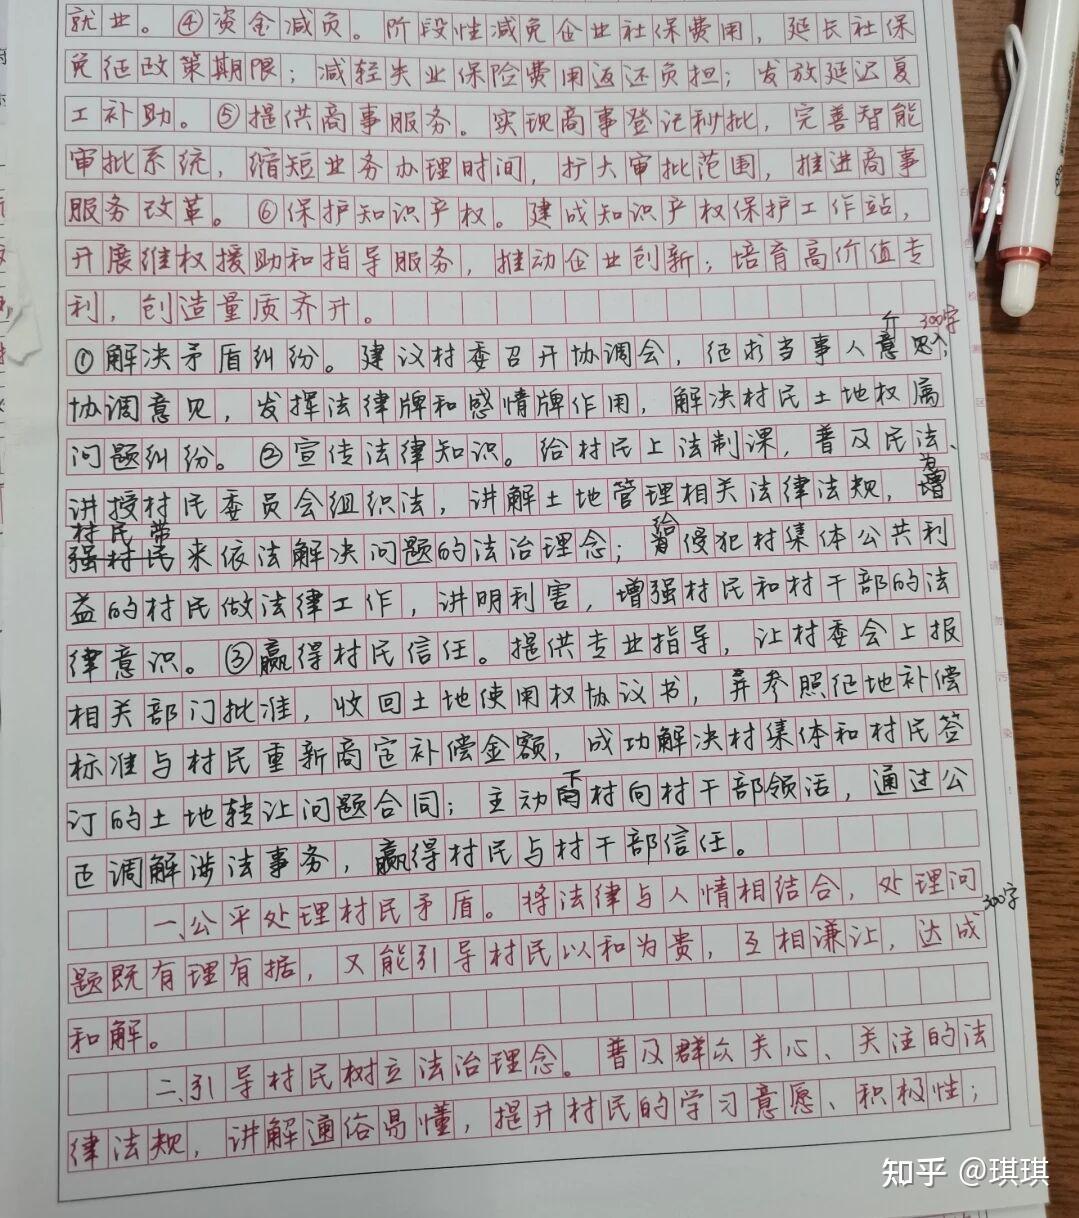 就业。④资金减负。阶段性减免企业社保费用，延长社保
免征政策期限；减轻失业保险费用返还负担；发放延迟复
工补助。⑤提供商事服务。实现商事登记秒批，完善智能
审批系统，缩短业务办理时间，扩大审批范围，推进商事
服务改革。⑥保护知识产权。建成知识产权保护工作站，
开展维权援助和指导服务，推动企业创新；培育高价值专
利，创造量质齐升。
300字
①解决矛盾纠纷。建议村委召开协调会，征求当事人意见，
协调意见，发挥法律牌和感情牌作用，解决村民土地权属
问题纠纷。②宣传法律知识。给村民上法制课，普及民法、
讲授村民委员会组织法，讲解土地管理相关法律法规，为
村民带来依法解决问题的法治理念；给侵犯村集体公共利
益的村民做法律工作，讲明利害，增强村民和村干部的法
律意识。③赢得村民信任。提供专业指导，让村委会上报
相关部门批准，收回土地使用权协议书，并参照征地补偿
标准与村民重新商定补偿金额，成功解决村集体和村民签
订的土地转让问题合同；主动下村向村干部领活，通过公
正调解涉法事务，赢得村民与村干部信任。
300字
一、公平处理村民矛盾。将法律与人情相结合，处理问
题既有理有据，又能引导村民以和为贵，互相谦让，达成
和解。
二、引导村民树立法治理念。普及群众关心、关注的法
律法规，讲解通俗易懂，提升村民的学习意愿、积极性；
知乎 @琪琪